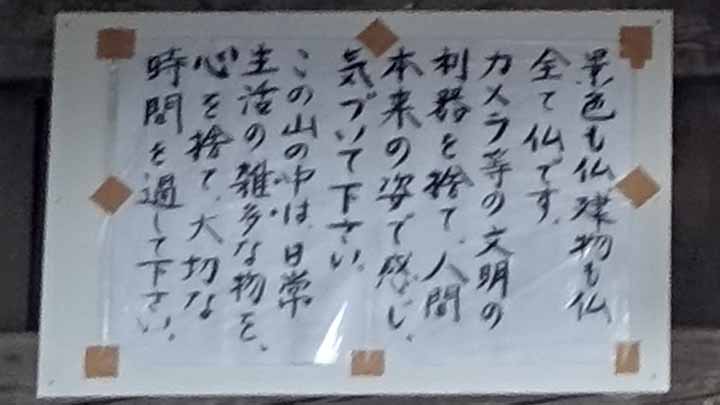 景色も仏、建物も仏
全て仏です。
カメラ等の文明の
利器を捨て、人間
本来の姿で感じ、
気づいて下さい。
この山の中は、日常
生活の雑多な物を、
心を捨て、大切な
時間を過して下さい。